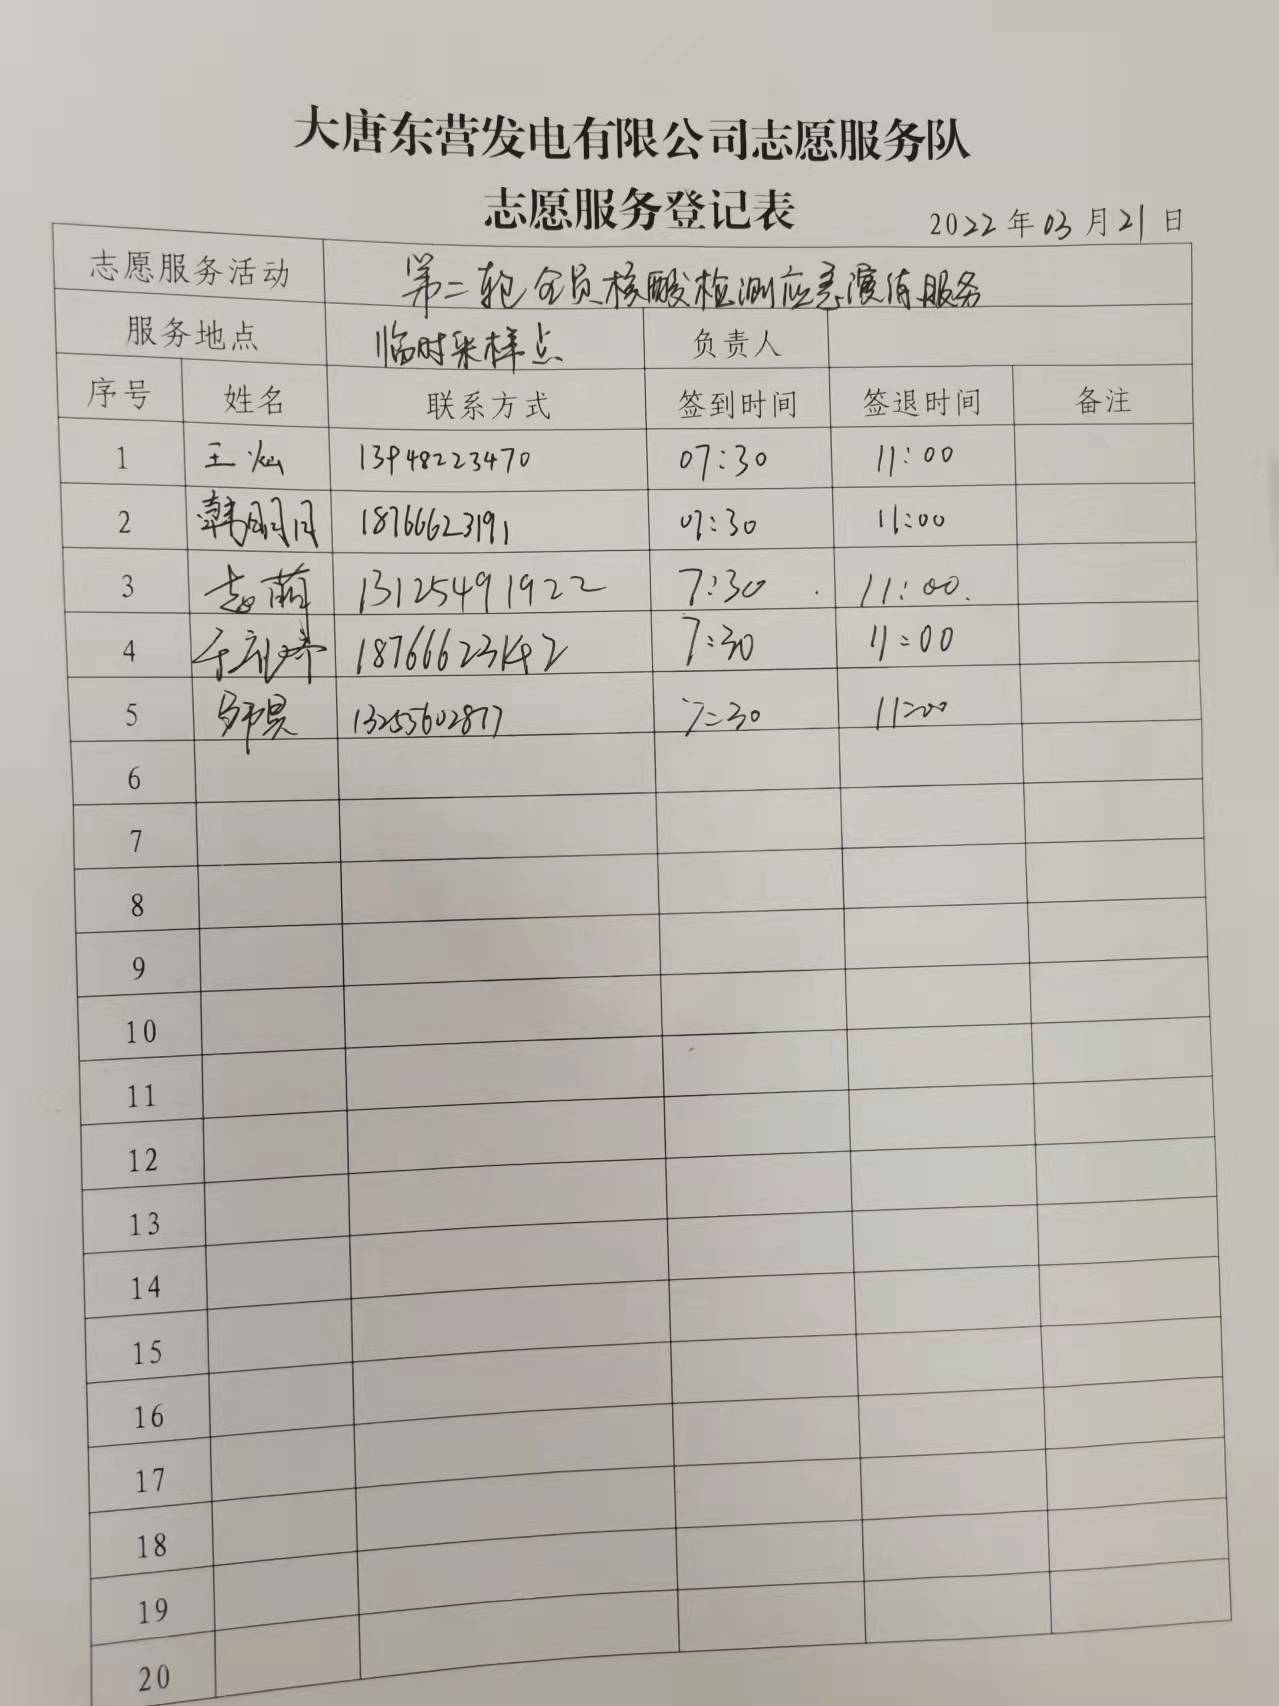 大唐东营发电有限公司志愿服务队
志愿服务登记表
2022年03月21日
志愿服务活动 第二轮全员核酸检测应急演练服务
服务地点 临时采样点 负责人
序号 姓名 联系方式 签到时间 签退时间 备注
1 王灿 13948223470 07:30 11:00
2 韩明月 18766623191 07:30 11:00
3 赵萌 13125491922 7:30 11:00
4 7:30 11:00
5 13255602877 7:30 11:00
6
7
8
9
10
11
12
13
14
15
16
17
18
19
20